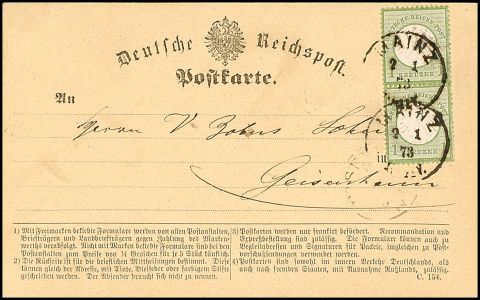 Deutsche Reichspost.
Postkarte.
An
Herrn V Zobus Sohn
in
Geisenheim
DEUTSCHE REICHS-POST
1 KREUZER 1
MAINZ
2 1
73
DEUTSCHE REICHS-POST
1 KREUZER
MAINZ
2 1
73
1) Mit Freimarken beklebte Formulare werden von allen Postanstalten,
Briefträgern und Landbriefträgern gegen Zahlung des Marken-
werths verabfolgt. Nicht mit Marken beklebte Formulare sind bei den
Postanstalten zum Preise von ¼ Groschen für je 5 Stück käuflich.
2) Die Rückseite ist für die brieflichen Mittheilungen bestimmt. Diese
können gleich der Adresse, mit Tinte, Bleifeder oder farbigem Stifte
geschrieben werden. Der Absender braucht sich nicht zu nennen.
3) Postkarten werden nur frankirt befördert. Recommandation und
Expreßbestellung sind zulässig. Die Formulare können auch zu
Begleitadressen und Signaturen für Packete, imgleichen zu Post-
vorschußsendungen verwendet werden.
4) Postkarten sind sowohl im innern Verkehr Deutschlands, als
auch nach fremden Staaten, mit Ausnahme Rußlands, zulässig.
C. 154.